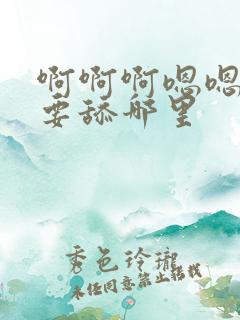 啊啊啊嗯嗯
要舔那里
秀色玲瓏
未经同意禁止转载